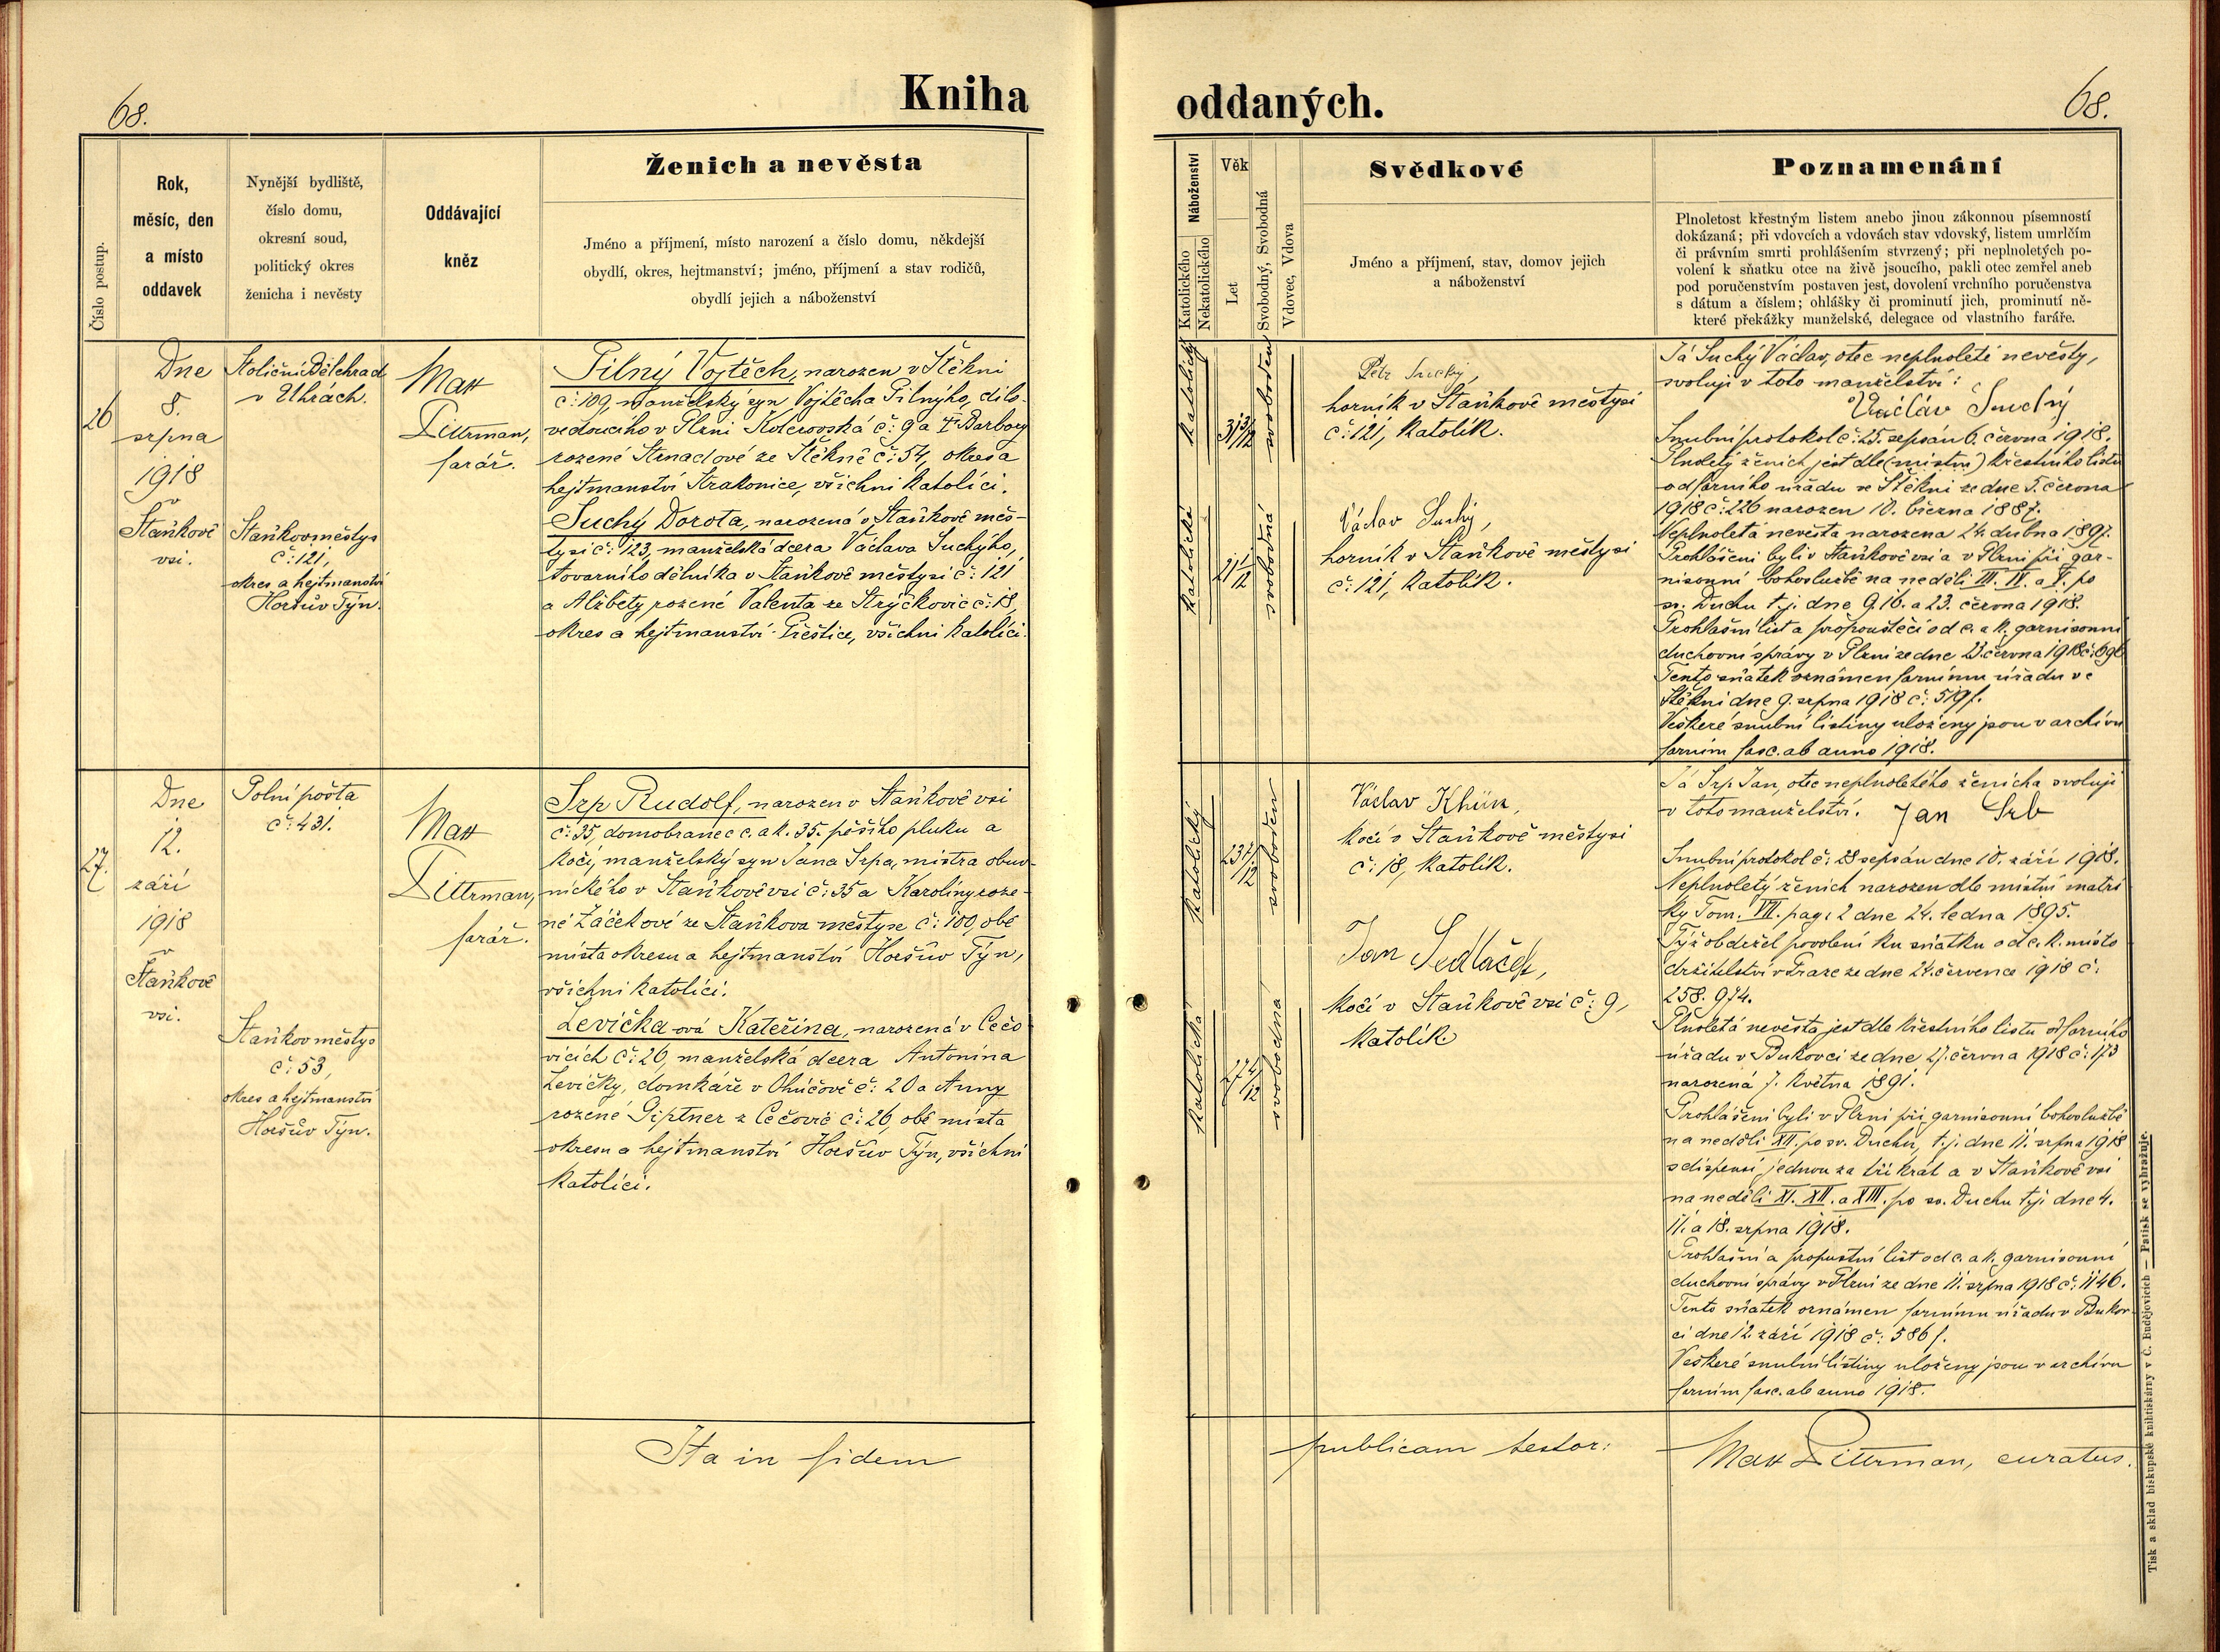 68.
Kniha
oddaných.
68.
Číslo postup.
Rok,
měsíc, den
a místo
oddavek
Nynější bydliště,
číslo domu,
okresní soud,
politický okres
ženicha i nevěsty
Oddávající
kněz
Ženich a nevěsta
Jméno a příjmení, místo narození a číslo domu, někdejší
obydlí, okres, hejtmanství; jméno, příjmení a stav rodičů,
obydlí jejich a náboženství
Náboženství
Katolického
Nekatolického
Věk
Let
Svobodný, Svobodná
Vdovec, Vdova
Svědkové
Jméno a příjmení, stav, domov jejich
a náboženství
Poznamenání
Plnoletost křestným listem anebo jinou zákonnou písemností
dokázaná; při vdovcích a vdovách stav vdovský, listem umrlčím
či právním smrti prohlášením stvrzený; při neplnoletých po-
volení k sňatku otce na živě jsoucího, pakli otec zemřel aneb
pod poručenstvím postaven jest, dovolení vrchního poručenstva
s dátum a číslem; ohlášky či prominutí jich, prominutí ně-
které překážky manželské, delegace od vlastního faráře.
26
Dne
8.
srpna
1918
v
Staňkově
vsi.
Stoliční Bělehrad
v Uhrách.
Staňkov městys
č: 121,
okres a hejtmanství
Horšův Týn.
Max
Dittrman,
farář.
Pilný Vojtěch, narozen v Štěkni
č: 109, manželský syn Vojtěcha Pilnýho, dílo-
vedoucího v Plzni Kolčrovská č: 9 a † Barbory
rozené Strnadové ze Štěkně č: 54, okres a
hejtmanství Strakonice, všichni katolíci.
Suchý Dorota, narozená v Staňkově měs-
tysi č: 123, manželská dcera Václava Suchýho,
továrního dělníka v Staňkově městysi č: 121
a Alžběty rozené Valenta ze Strýčkovic č: 18,
okres a hejtmanství Přeštice, všichni katolíci.
katolický
31 3/12
svoboden
katolická
21 4/12
svobodná
Petr Suchý,
horník v Staňkově městysi
č: 121, katolík.
Václav Suchý,
horník v Staňkově městysi
č: 121, katolík.
Já Suchý Václav, otec neplnoleté nevěsty,
svoluji v toto manželství:
Václav Suchý
Snubní protokol č: 25. sepsán 6. června 1918.
Plnoletý ženich jest dle (místní) křestního listu
od farního úřadu ve Štěkni ze dne 5. června
1918 č: 226 narozen 10. března 1887.
Neplnoletá nevěsta narozena 24. dubna 1897.
Prohlášeni byli v Staňkově vsi a v Plzni při gar-
nisonní bohoslužbě na neděli III. IV. a V. po
sv. Duchu t.j. dne 9. 16. a 23. června 1918.
Prohlašní list a propouštěcí od c. a k. garnisonní
duchovní správy v Plzni ze dne 23. června 1918 č: 696
Tento sňatek oznámen farnímu úřadu ve
Štěkni dne 9. srpna 1918 č: 519 f.
Veškeré snubní listiny uloženy jsou v archivu
farním fasc. ab anno 1918.
27.
Dne
12.
září
1918
v
Staňkově
vsi.
Polní pošta
č: 431.
Staňkov městys
č: 53,
okres a hejtmanství
Horšův Týn.
Max
Dittrman,
farář.
Srp Rudolf, narozen v Staňkově vsi
č: 35, domobranec c. a k. 35. pěšího pluku a
kočí, manželský syn Jana Srpa, mistra obuv-
nického v Staňkově vsi č: 35 a Karoliny roze-
né Žáčekové ze Staňkova městyse č: 100, obě
místa okresu a hejtmanství Horšův Týn,
všichni katolíci.
Levička-ová Kateřina, narozená v Čečo-
vicích č: 26, manželská dcera Antonína
Levičky, domkáře v Ohúčově č: 20 a Anny
rozené Giptner z Čečovic č: 26, obě místa
okresu a hejtmanství Horšův Týn, všichni
katolíci.
katolický
23 7/12
svoboden
katolická
27 4/12
svobodná
Václav Khün,
kočí v Staňkově městysi
č: 18, katolík.
Jan Sedláček,
kočí v Staňkově vsi č: 9,
katolík
Já Srp Jan, otec neplnoletého ženicha svoluji
v toto manželství. Jan Srb
Snubní protokol č: 28 sepsán dne 10. září 1918.
Neplnoletý ženich narozen dle místní matri
ky Tom. VII. pag: 2 dne 24. ledna 1895.
Týž obdržel povolení ku sňatku od c. k. místo
držitelství v Praze ze dne 24. července 1918 č:
258.974.
Plnoletá nevěsta jest dle křestního listu od farního
úřadu v Bukovci ze dne 27. června 1918 č: 173
narozená 7. května 1891.
Prohlášeni byli v Plzni při garnisonní bohoslužbě
na neděli XII. po sv. Duchu, t.j. dne 11. srpna 1918
s dispensí jednou za tři krát a v Staňkově vsi
na neděli XI. XII. a XIII. po sv. Duchu t.j. dne 4.
11. a 18. srpna 1918.
Prohlašní a propustní list od c. a k. garnisonní
duchovní správy v Plzni ze dne 11. srpna 1918 č: 1146.
Tento sňatek oznámen farnímu úřadu v Bukov-
ci dne 12. září 1918 č: 586 f.
Veškeré snubní listiny uloženy jsou v archivu
farním fasc. ab anno 1918.
Ita in fidem
publicam testor:
Max Dittrman, curatus.
Tisk a sklad biskupské knihtiskárny v Č. Budějovicích — Patisk se vyhražuje.